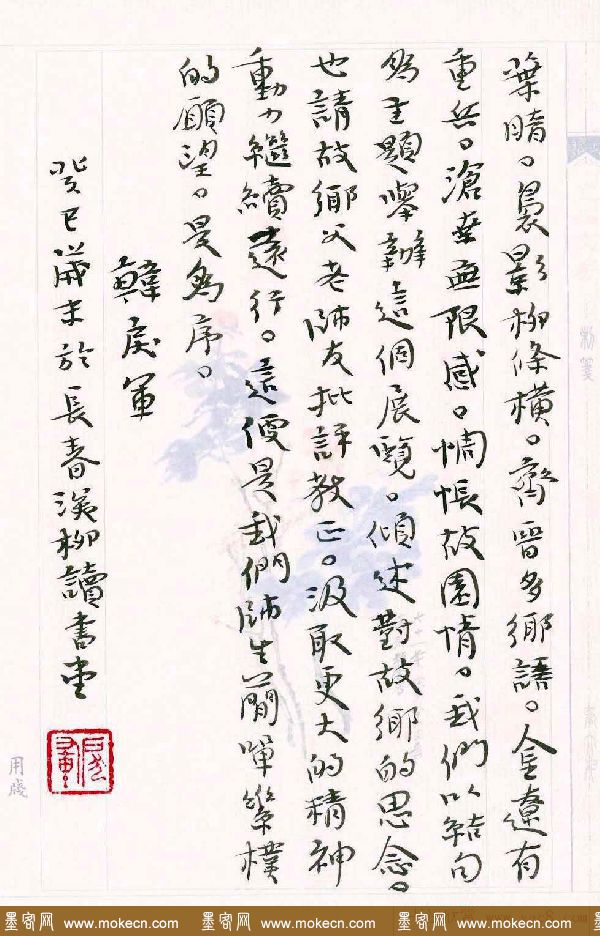 葉晴。裊影柳條橫。齊晉多鄉語。金遼有
重兵。滄桑無限感。惆悵故園情。我們以結句
為主題舉辦這個展覽。傾述對故鄉的思念。
也請故鄉父老師友批評教正。汲取更大的精神
動力繼續遠行。這便是我們師生簡單樸
的願望。是為序。
韓戾軍
癸巳歲末於長春柳讀書堂
用箋
墨客网 www.mokecn.com 墨客网 www.mokecn.com 墨客网 www.mokecn.com